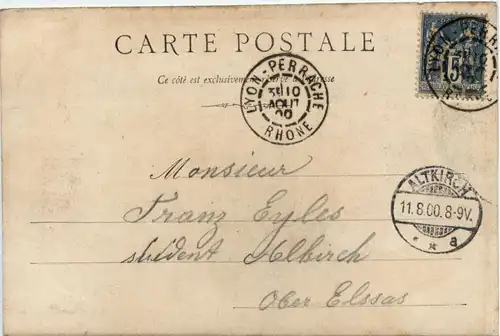 CARTE POSTALE
Ce côté est exclusivement réservé à l'adresse
LYON-PERRACHE
3E 10
AOUT
00
RHONE
15
ALTKIRCH
11.8.00.8-9V.
* * a
Monsieur
Franz Eyles
student Altkirch
Ober Elssas